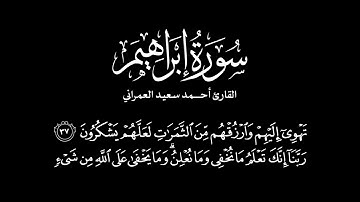 سُورَةُ إِبْرَاهِيم
القارئ أحمد سعيد العمراني
تَهْوِىٓ إِلَيْهِمْ وَٱرْزُقْهُم مِّنَ ٱلثَّمَرَٰتِ لَعَلَّهُمْ يَشْكُرُونَ ٣٧
رَبَّنَآ إِنَّكَ تَعْلَمُ مَا نُخْفِى وَمَا نُعْلِنُ ۗ وَمَا يَخْفَىٰ عَلَى ٱللَّهِ مِن شَىْءٍ